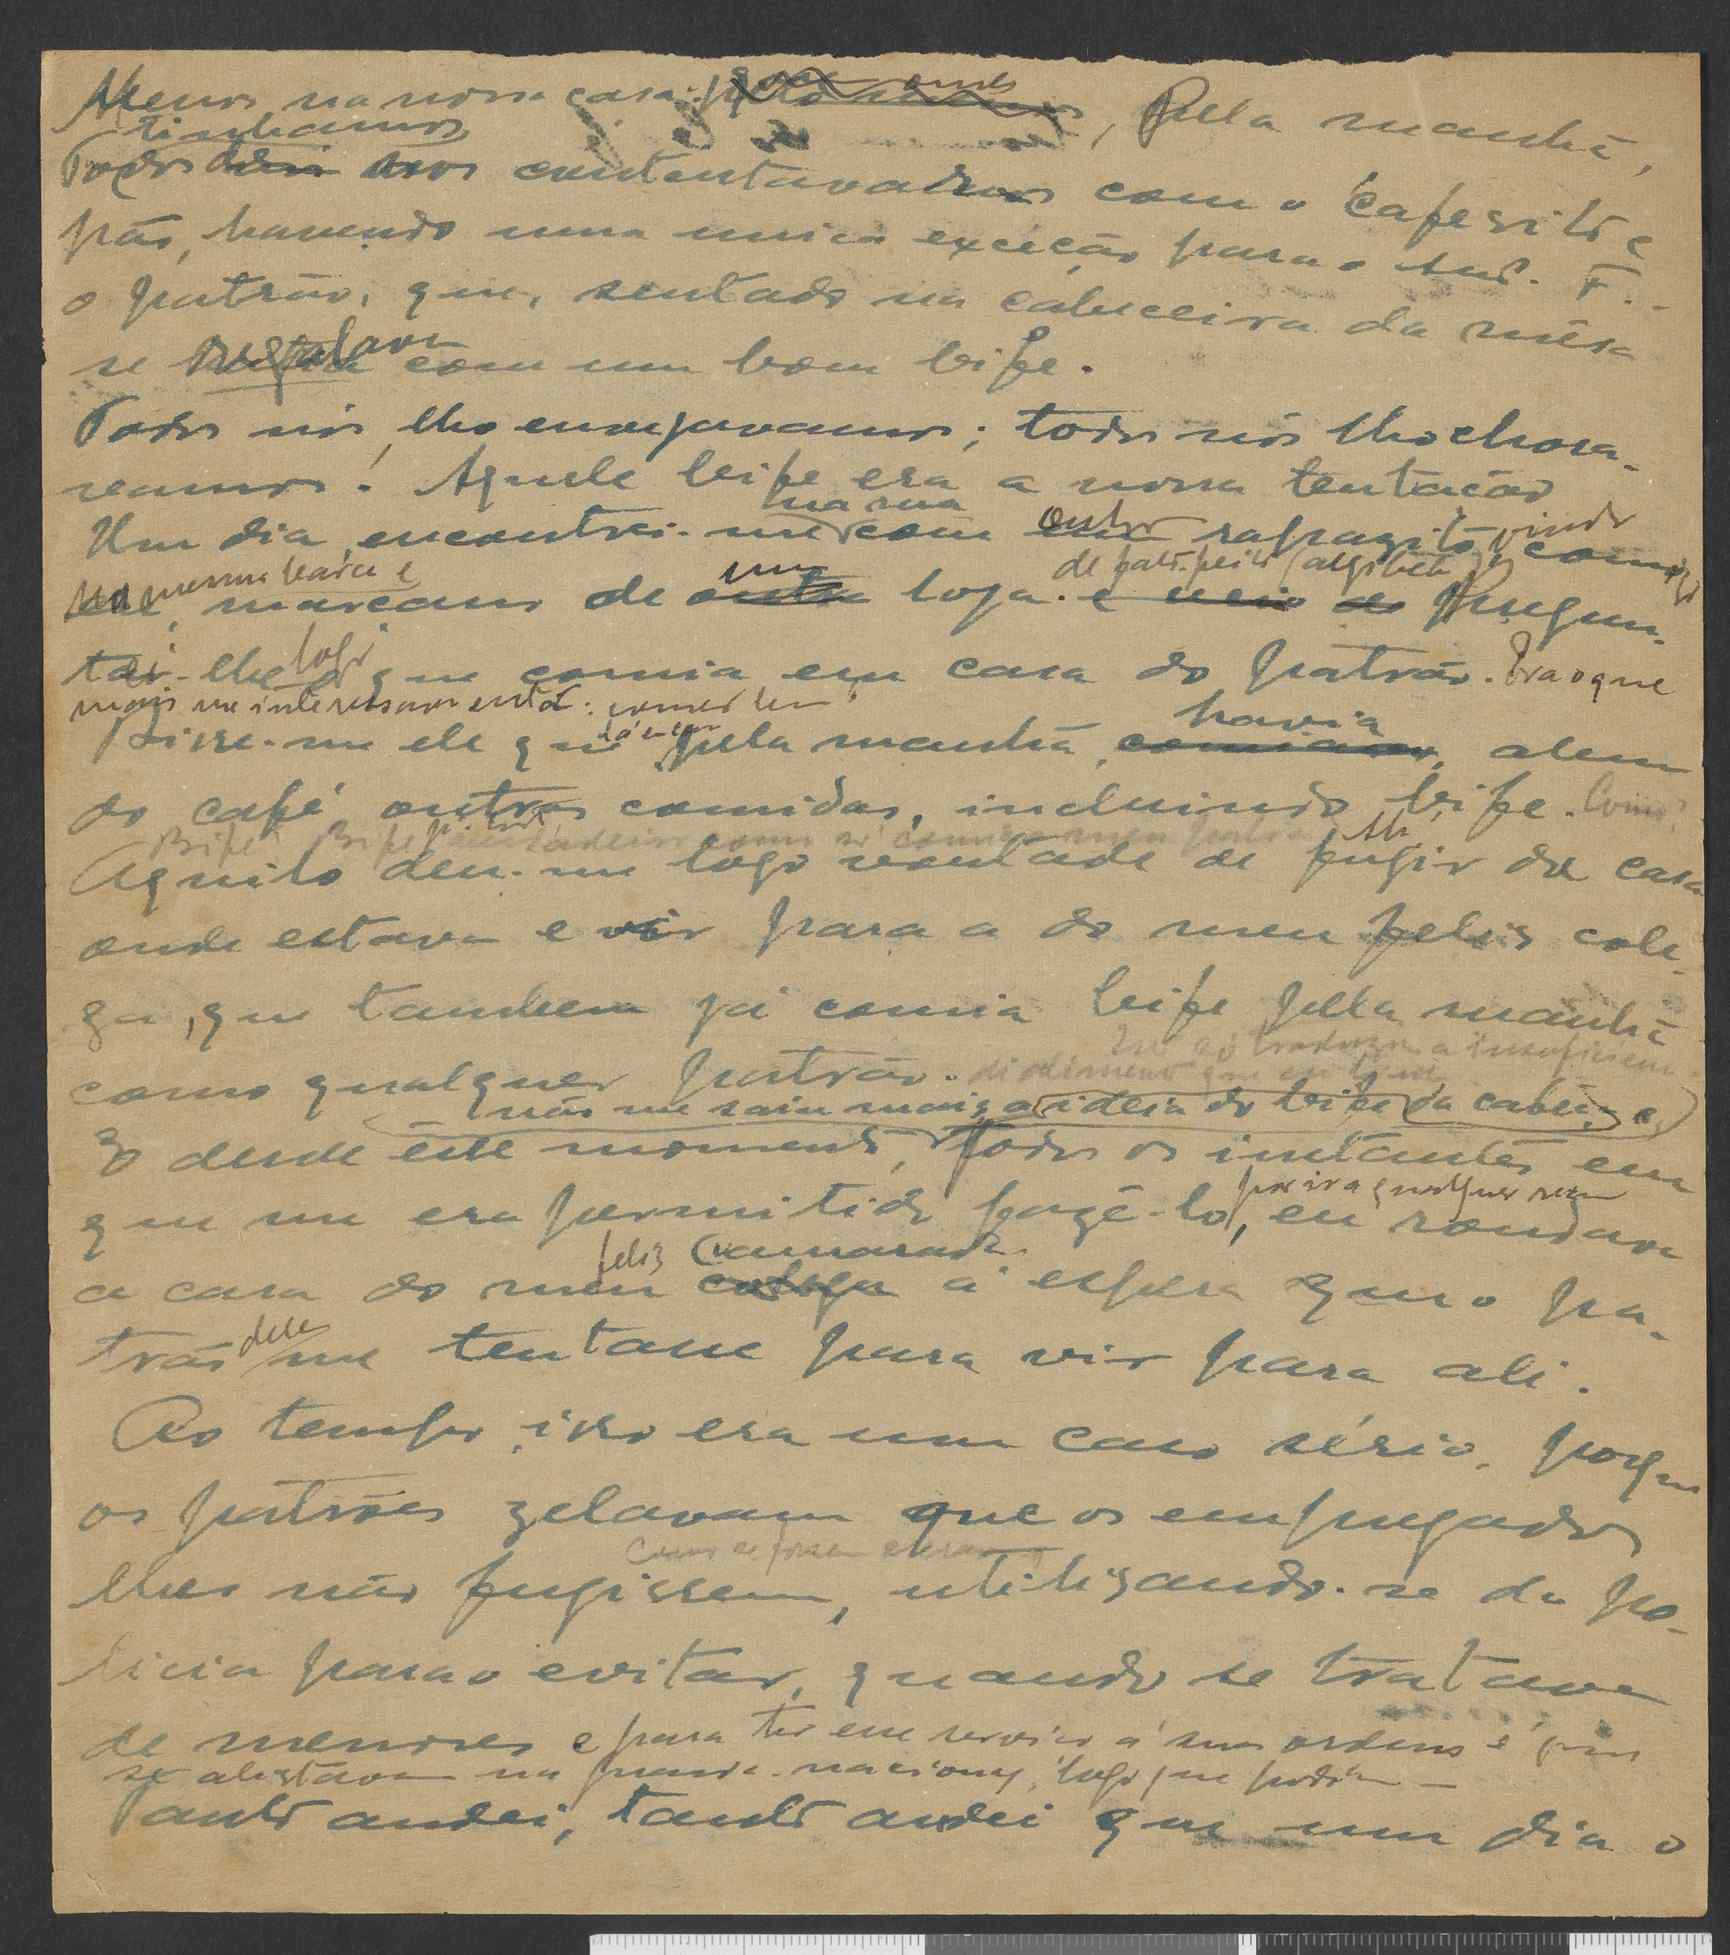 Menos na nossa casa. Pella manhã,
tinhamos
Todos nos contentavamos com o café sito e
pão, havendo uma unica exceção para o snr. F.
o patrão, que, sentado na cabeceira da mêsa
se regalava com um bom bife.
Todos nós lho envejavamos; todos nós lho chora-
reamos! Aquele bife era a nossa tentação
na rua
Um dia encontrei-me com outro rapazito, vindo comigo
na mesma barca e
marcano de uma loja de Pregun-
tei-lhe logo o que comia em casa do patrão. Era o que
mais me interessava então: comer bem
Disse-me ele que lá em pela manhã, havia, alem
do café, outras comidas, incluindo bife. Como?
Bife? Bife verdadeiro como só comia o meu patrão
Aquilo deu-me logo vontade de fugir da casa
onde estava e vir para a do meu felis cole-
ga, que tambem já comia bife pella manhã
como qualquer patrão.
não me saiu mais a ideia do bife da cabêça e
E desde êste momento, todos os instantes em
que me era permitido fazê-lo, por ira qualquer rua eu rondava
a casa do meu felis camarada á espera que o pa-
trão dele me tentasse para vir para ali.
Ao tempo, isso era um caso sério, porque
os patrões zelavam que os empregados
como se fossem escravos
lhes não fugissem, utilisando-se da po-
licia para o evitar, quando se tratava
de menores e para ter esse serviço á suas ordens é que
se alistavam na guarda-nacional, logo que podiam
Tanto andei, tanto andei que um dia o